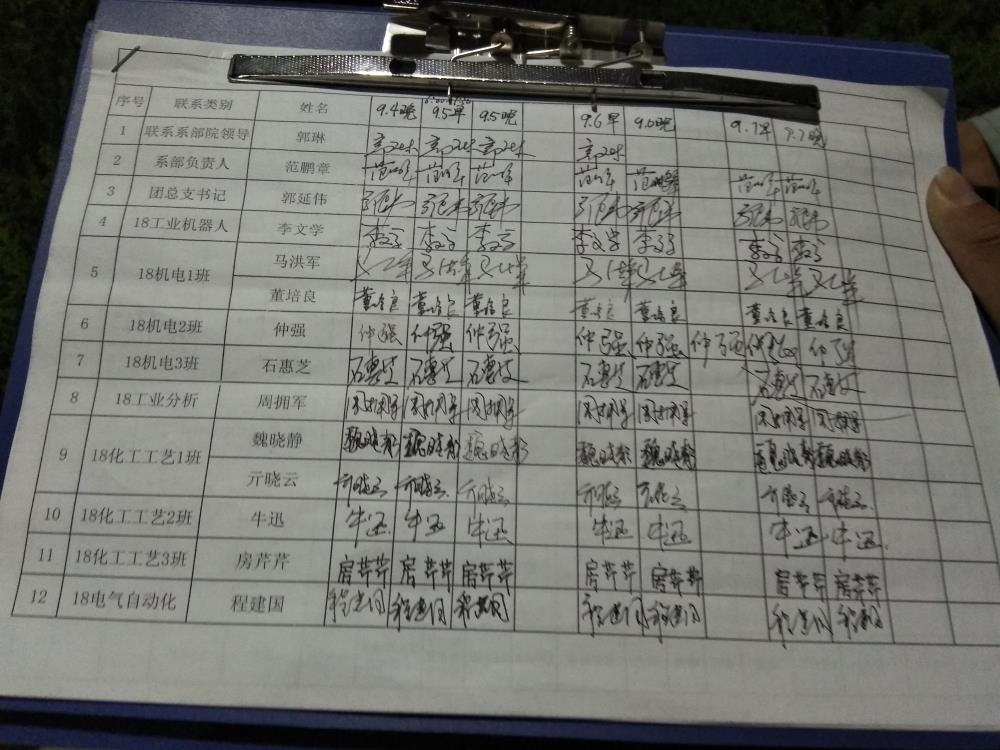 序号 联系类别 姓名 9.4晚 9.5早 9.5晚 9.6早 9.6晚 9.7早 9.7晚
1 联系系部院领导 郭琳
2 系部负责人 范鹏章
3 团总支书记 郭延伟
4 18工业机器人 李文学 李文学 李文学 李文学 李文学 李文学 李文学 李文学
5 18机电1班 马洪军
董培良 董培良 董培良 董培良 董培良 董培良 董培良 董培良
6 18机电2班 仲强 仲强 仲强 仲强 仲强 仲强 仲强 仲强
7 18机电3班 石惠芝 石惠芝 石惠芝 石惠芝 石惠芝 石惠芝 石惠芝 石惠芝
8 18工业分析 周拥军 周拥军 周拥军 周拥军 周拥军 周拥军 周拥军 周拥军
9 18化工工艺1班 魏晓静 魏晓静 魏晓静 魏晓静 魏晓静 魏晓静 魏晓静 魏晓静
亓晓云 亓晓云 亓晓云 亓晓云 亓晓云 亓晓云 亓晓云 亓晓云
10 18化工工艺2班 牛迅 牛迅 牛迅 牛迅 牛迅 牛迅 牛迅 牛迅
11 18化工工艺3班 房芹芹 房芹芹 房芹芹 房芹芹 房芹芹 房芹芹 房芹芹 房芹芹
12 18电气自动化 程建国 程建国 程建国 程建国 程建国 程建国 程建国 程建国